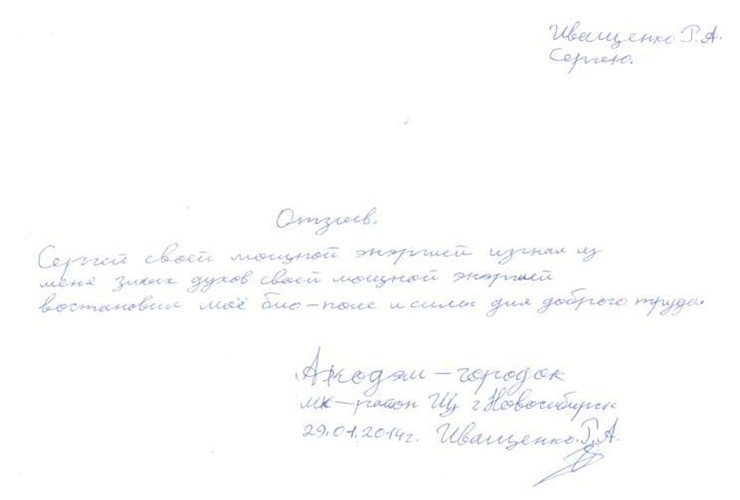 Иващенко Г.А.
Сергею.
Отзыв.
Сергей своей мощной энэргией изгнал из
меня злых духов своей мощной энэргией
востановил моё био-поле и силы для доброго труда.
Акодэм-городок
мк-район Щ г Новосибирск
29.01.2014г. Иващенко.Г.А.